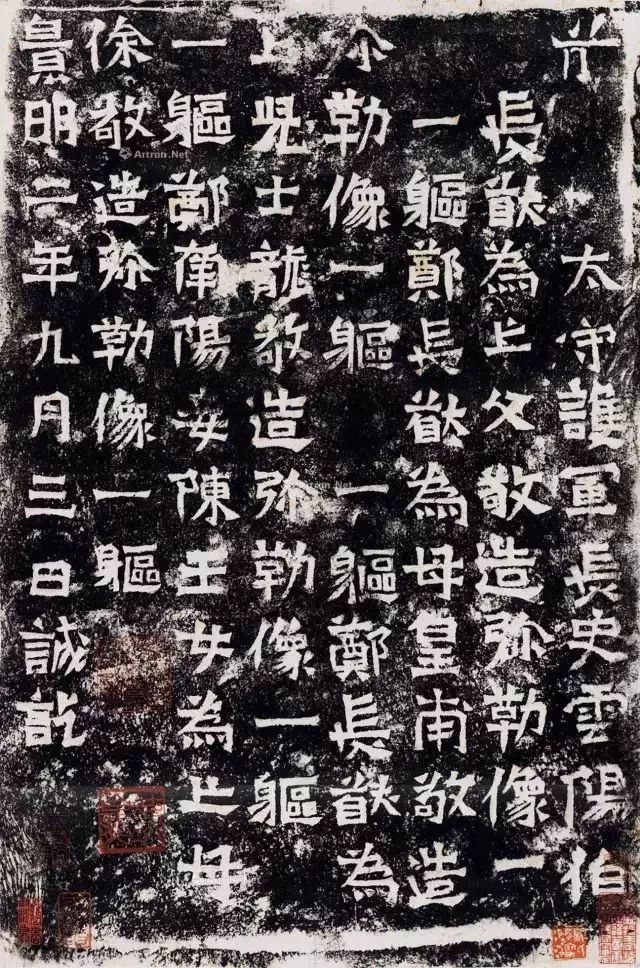 太守護軍長史雲陽伯
長猷為亡父敬造弥勒像一
一軀鄭長猷為母皇甫敬造
尒勒像一軀一軀鄭長猷為
亡児士龍敬造弥勒像一軀
一軀鄭南陽妾陳玉女為亡母
徐敬造弥勒像一軀
景明二年九月三日誡訖
Artron.Net